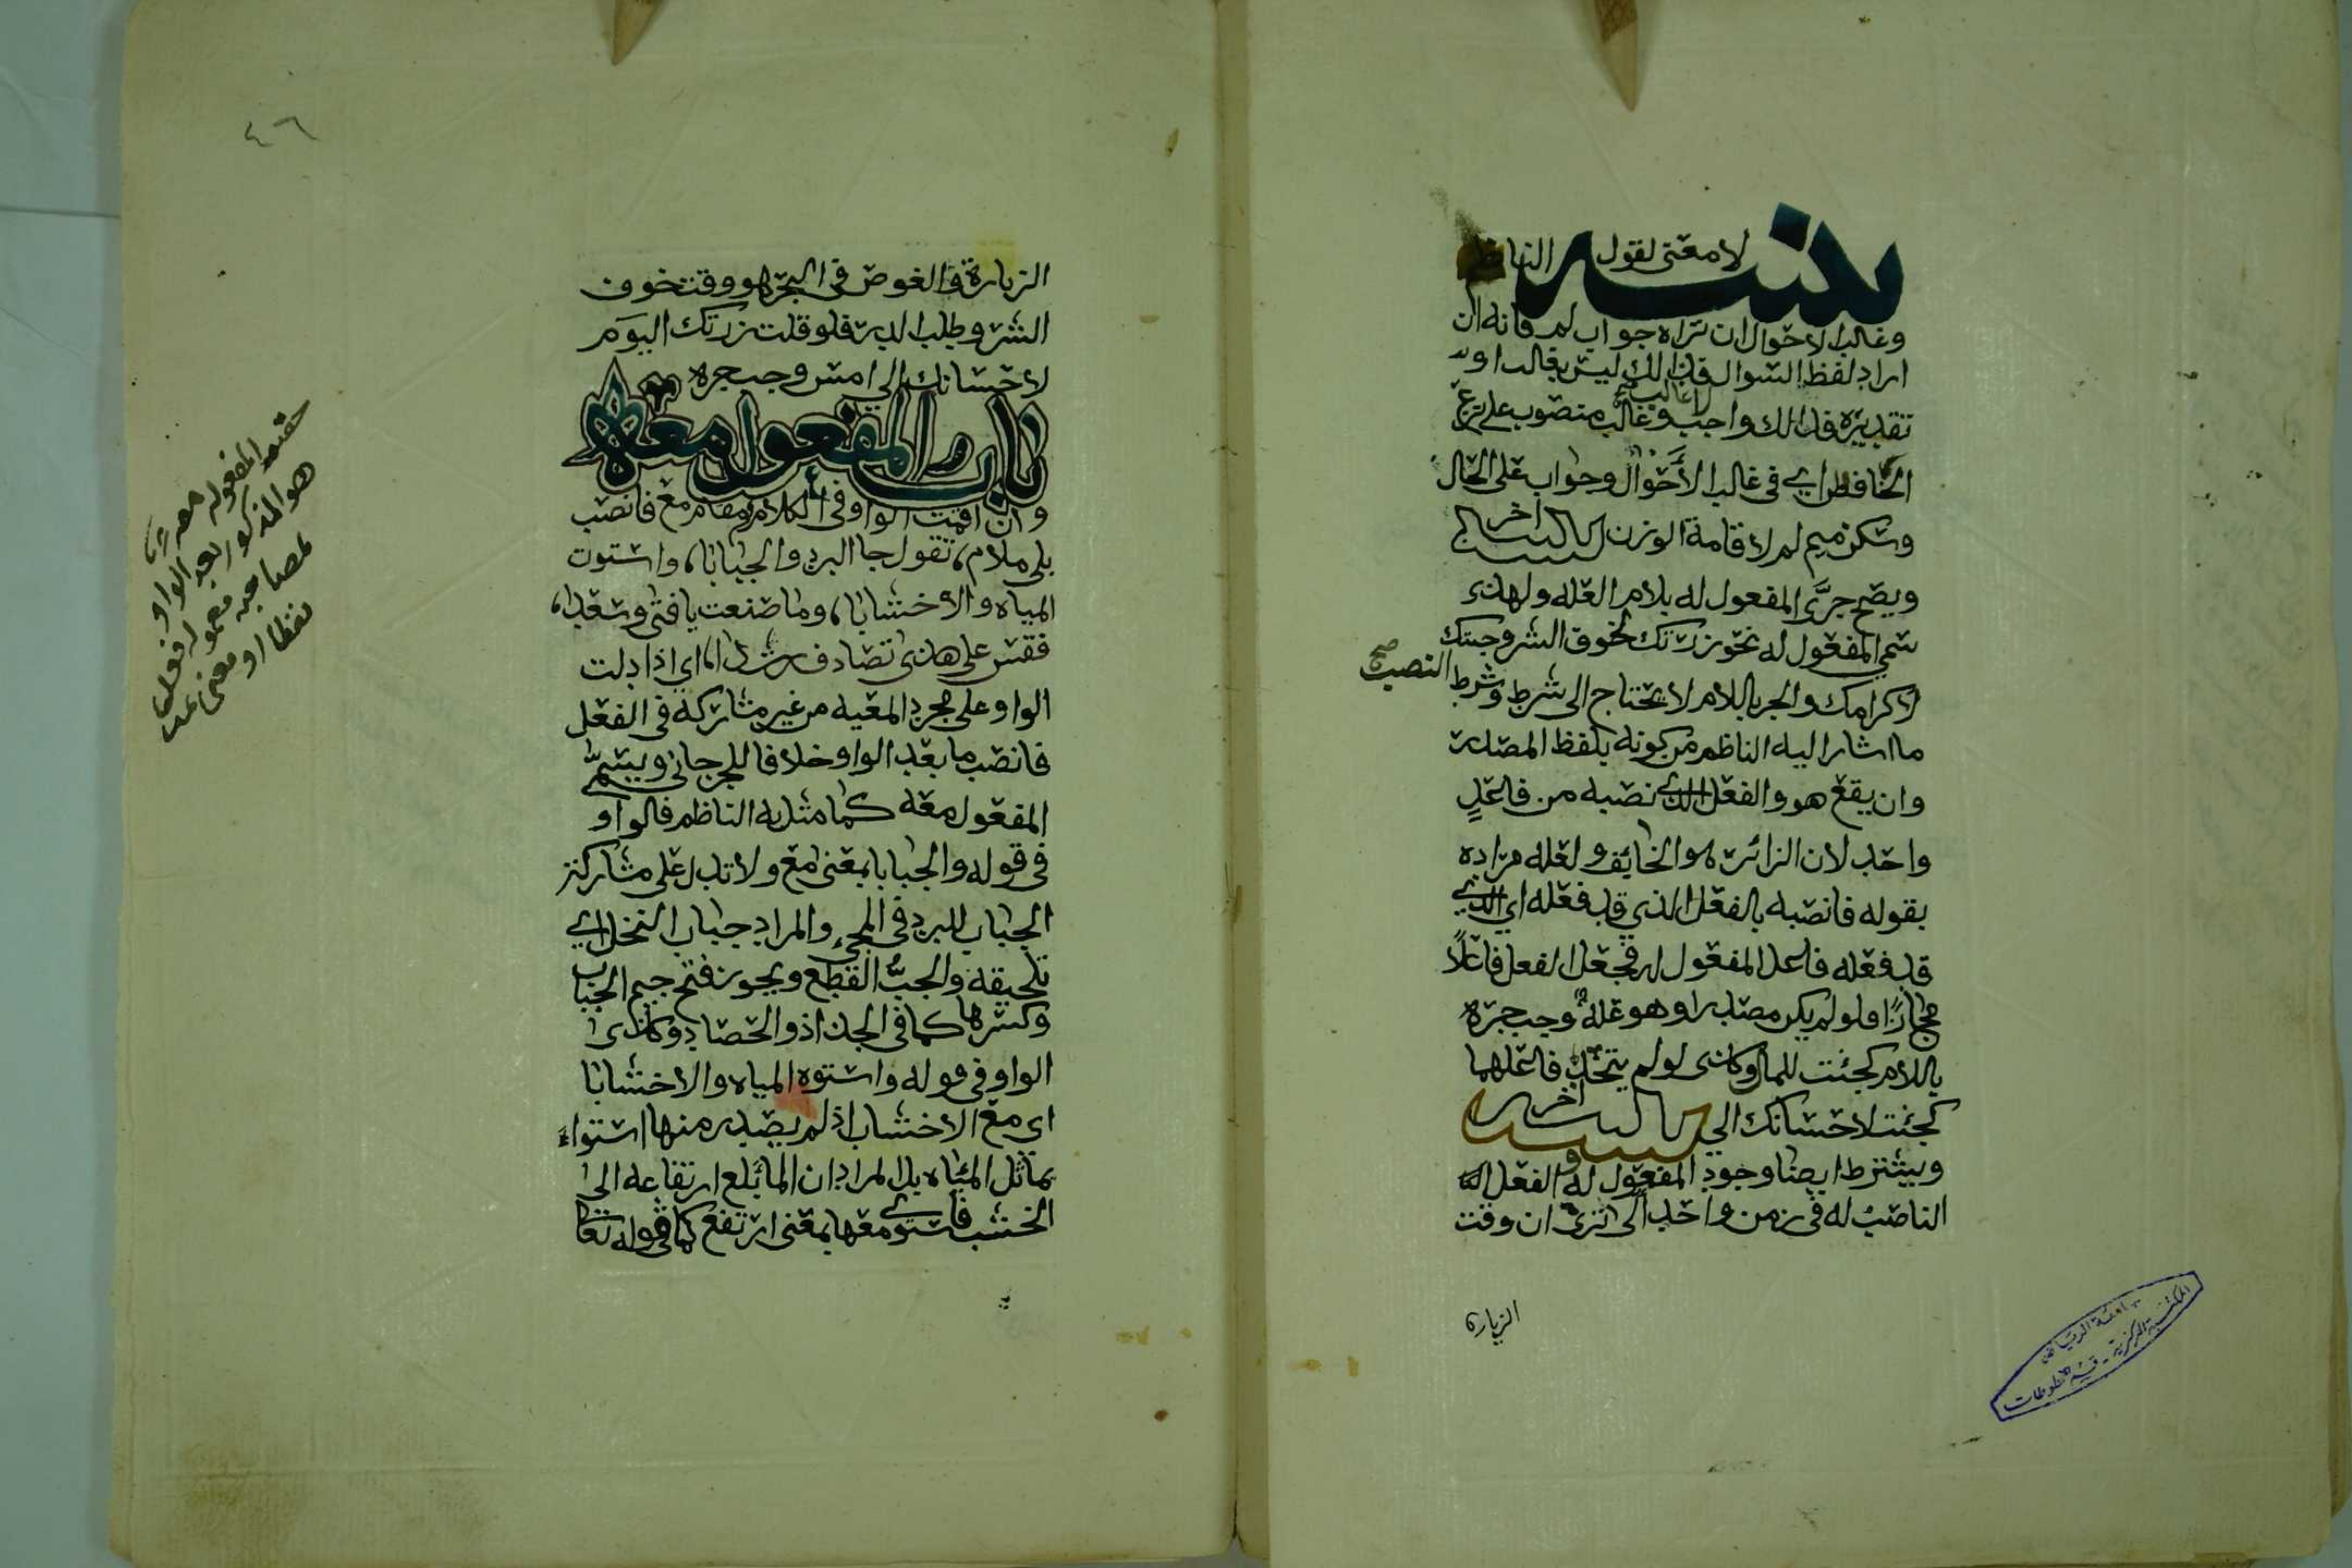 تنبيه لا معنى لقول الناظم
وغالب الاحوال ان تراه جواب لم فانه ان
اراد لفظ السوال فذالك ليس بغالب اولا
تقديره فذالك واجب وغالب منصوب على نزع
الخافض اي في غالب الأحوال وجواب على الحال
وسكن ميم لم لاقامة الوزن تنبيه اخر
ويصح جرَّ المفعول له بلام العله ولهذى
سمي المفعول له نحو زرتك لخوف الشر وجيتك
لاكرامك والجر باللام لا يحتاج الى شرط وشرط النصب صح
ما اشار اليه الناظم من كونه بلفظ المصدر
وان يقع هو والفعل الذي نصبه من فاعلٍ
واحد لان الزائر هو الخايف ولعله مراده
بقوله فانصبه بالفعل الذي قد فعله اي الذي
قد فعله فاعل المفعول له فجعل الفعل فاعلاً
مجازًا فلو لم يكن مصدرا وهو علة وجب جره
باللام كجئت للمال وكذى لو لم يتحد فاعلهما
كجئت لاحسانك الي تنبيه اخر
ويشترط ايضا وجود المفعول له والفعل
الناصب له في زمن واحد ألى ترى ان وقت
الزيارة
الزيارة والغوص في البحر هو وقت خوف
الشر وطلب الدر فلو قلت زرتك اليوم
لاحسانك الي امس وجب جره
باب المفعول معه
وان اقمت الواو في الكلام مقام مع فانصب
بلى ملام، تقول جا البرد والجبابا، واستوت
المياه والاخشابا، وما صنعت يا فتى وسعدا،
فقس على هذى تصادف رشدا، اي اذا دلت
الواو على مجرد المعيه من غير مشاركة في الفعل
فانصب ما بعد الواو خلافا للجرجاني ويسمى
المفعول معه كما مثل به الناظم فالواو
في قوله والجبابا بمعنى مع ولا تدل على مشاركة
الجباب للبرد في المجيء والمراد جباب النخل اي
تلحيقه والجبُّ القطع ويجوز فتح جيم الجباب
وكسرها كما في الجذاذ والحصاد وكذى
الواو في قوله واستوه المياه والاخشابا
اي مع الاخشاب اذ لم يصدر منها استواء
يماثل المياه بل المراد ان الما بلغ ارتفاعه الى
الخشب فاستوى معها بمعنى ارتفع كما في قوله تعا
المفعول معه
هو المذكور بعد الواو
لمصاحبه معمول فعل
لفظا او معنى
٤٦
جامعة الرياض
المكتبة المركزية - قسم المخطوطات